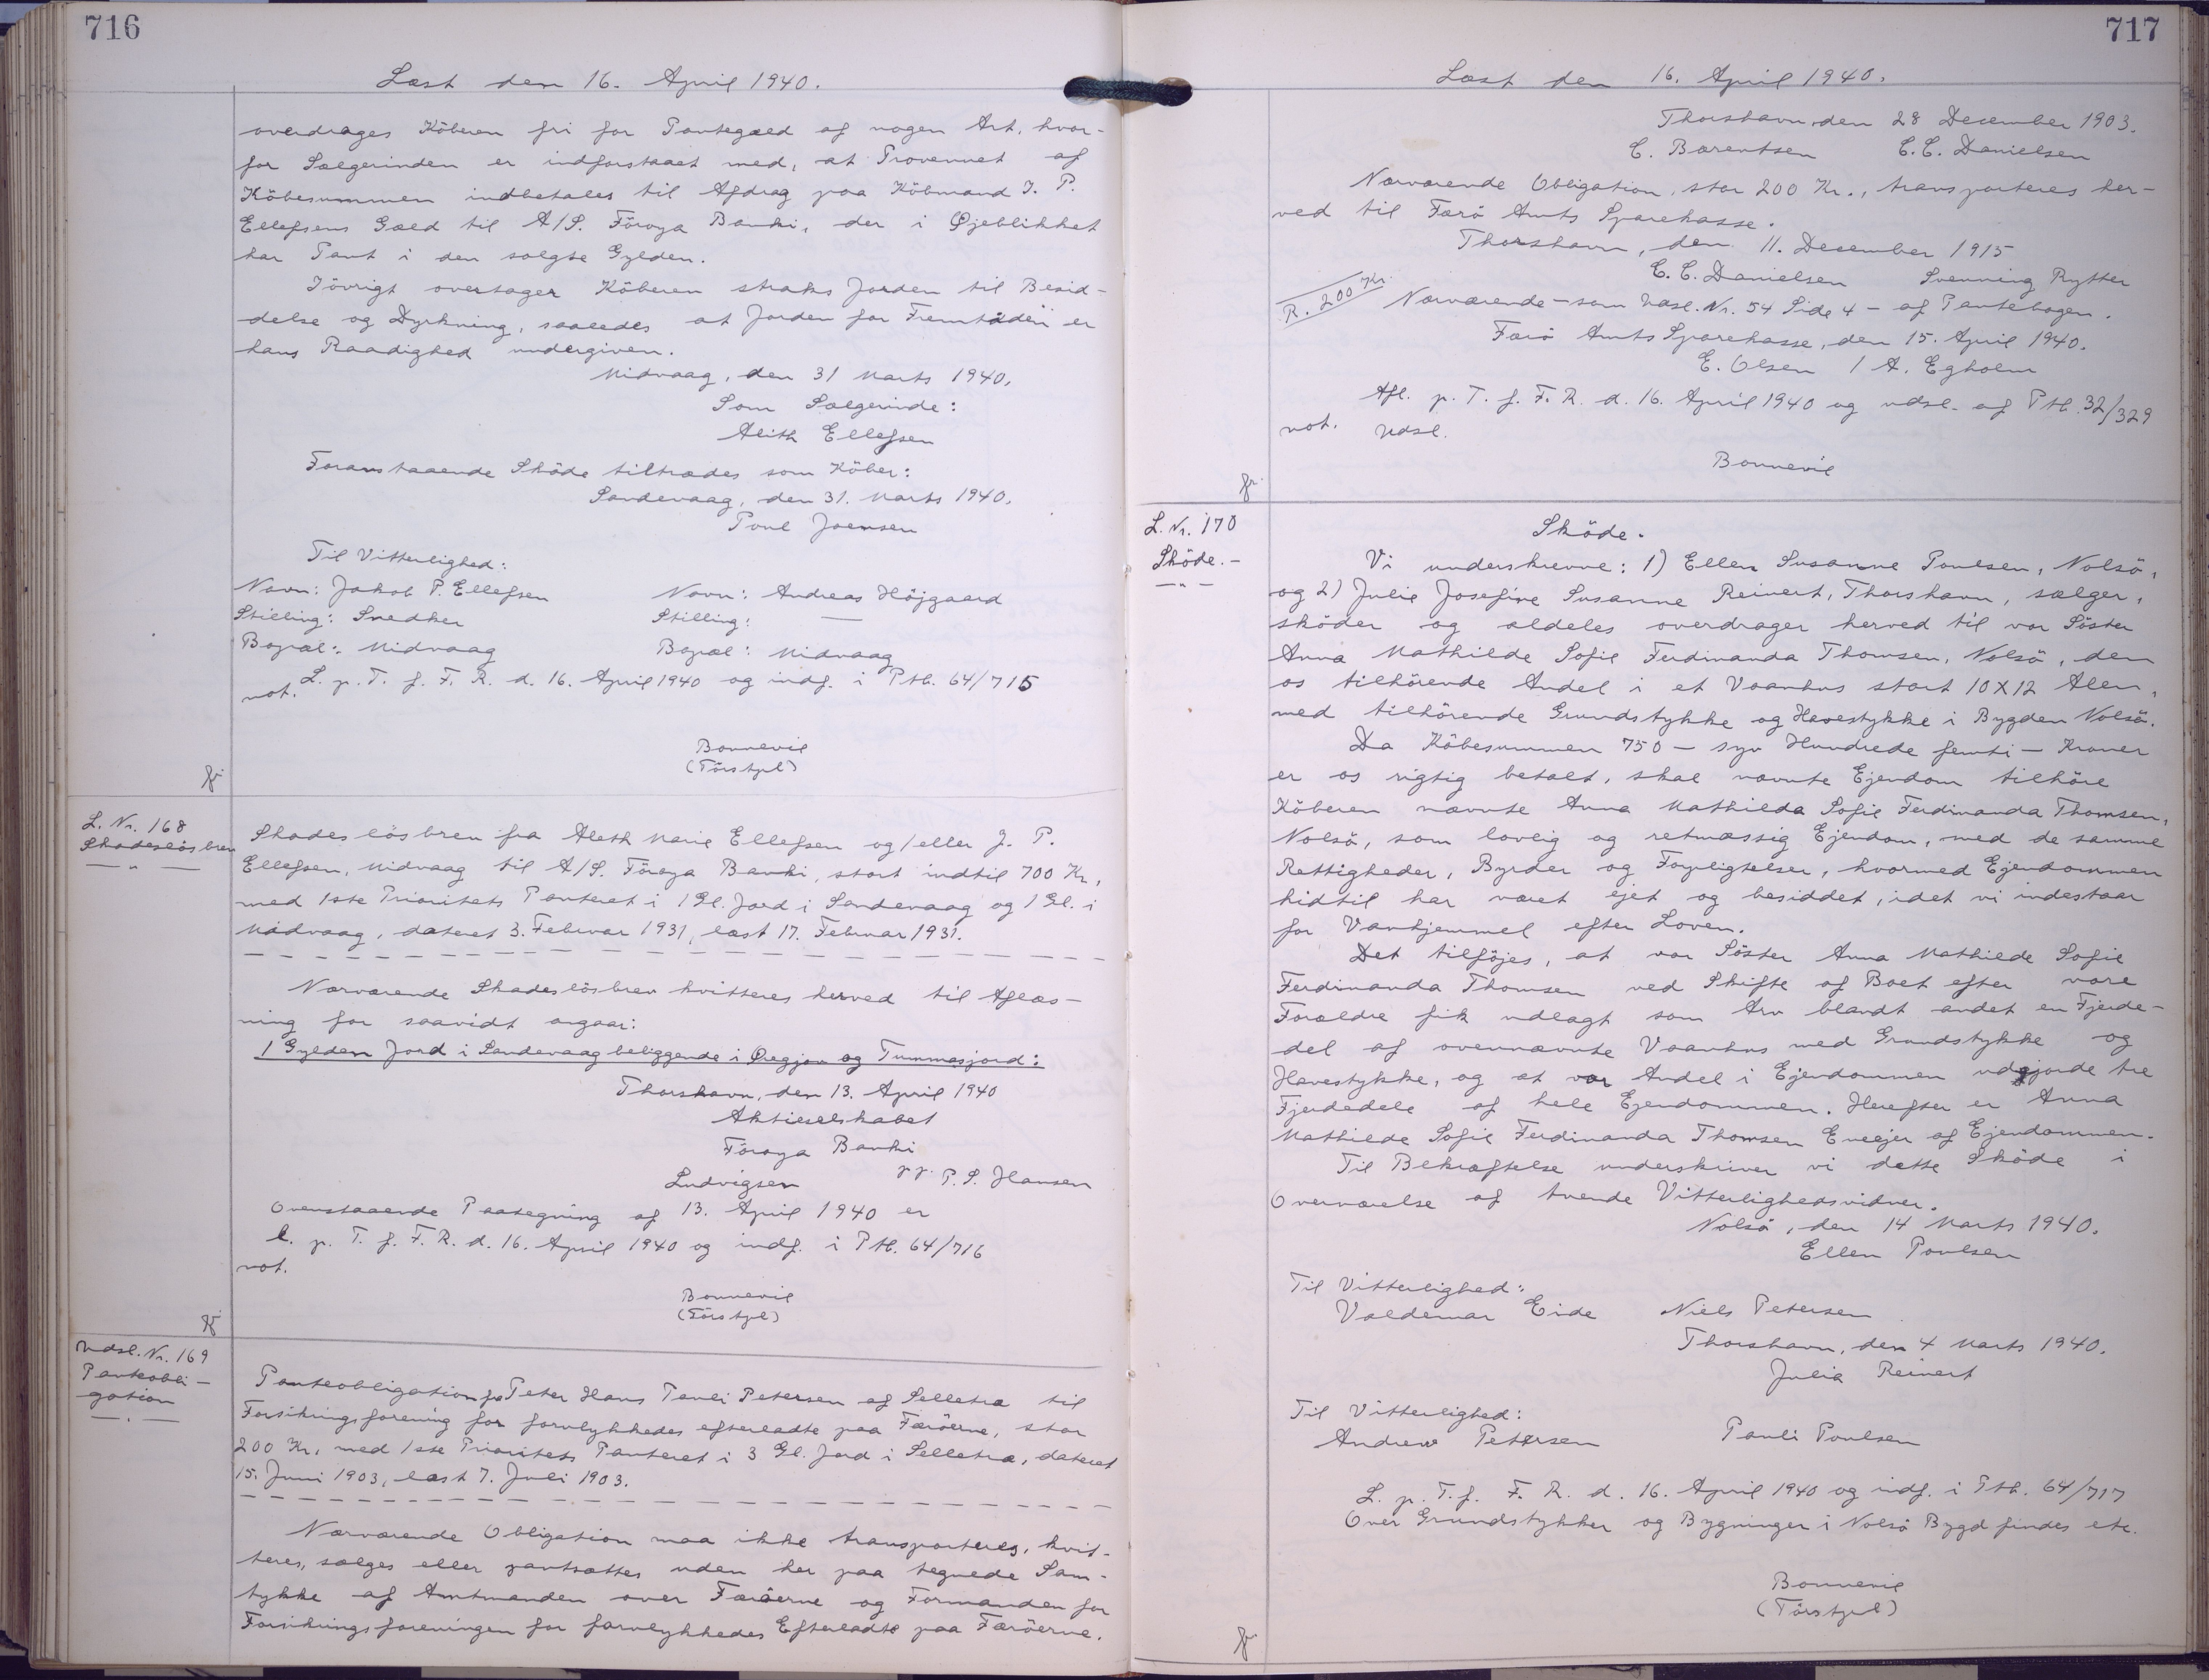 716
Læst den 16. April 1940.
overdrages Köberen fri for Pantegæld af nogen Art, hvor-
for Sælgerinden er indforstaaet med, at Provenuet af
Köbesummen indbetales til Afdrag paa Köbmand J. P.
Ellefsens Gæld til A/S. Föroya Banki, der i Øjeblikket
har Pant i den solgte Gylden.
Iövrigt overtager Köberen straks Jorden til Besid-
delse og Dyrkning, saaledes at Jorden for Fremtiden er
hans Raadighed undergiven.
Midvaag, den 31 Marts 1940.
Som Sælgerinde:
Aleth Ellefsen
Foranstaaende Sköde tiltrædes som Köber:
Sandevaag, den 31. Marts 1940.
Poul Joensen
Til Vitterlighed:
Navn: Jakob P. Ellefsen Navn: Andreas Höjgaard
Stilling: Snedker Stilling: —
Bopæl: Midvaag Bopæl: Midvaag
L. p. T. f. F. R. d. 16. April 1940 og indf. i Ptb. 64/715
not.
Bonnevie
(Tórstpl)
fr.
L. Nr. 168
Skadeslösbrev
— " —
Skadeslösbrev fra Aleth Marie Ellefsen og/eller J. P.
Ellefsen, Midvaag til A/S. Föroya Banki, stort indtil 700 Kr.,
med 1ste Prioritets Panteret i 1 Gl. Jord i Sandevaag og 1 Gl. i
Midvaag, dateret 3. Februar 1931, læst 17. Februar 1931.
Nærværende Skadeslösbrev kvitteres herved til Aflæs-
ning for saavidt angaar:
1 Gylden Jord i Sandevaag beliggende i Øregjov og Tummasjord:
Thorshavn, den 13. April 1940
Aktieselskabet
Föroya Banki
Ludvigsen pp. P. S. Hansen
Ovenstaaende Paategning af 13. April 1940 er
l. p. T. f. F. R. d. 16. April 1940 og indf. i Ptb. 64/716
not.
Bonnevie
(Tórstpl)
fr.
Udsl. Nr. 169
Panteobli-
gation
— . —
Panteobligation fra Peter Hans Pauli Petersen af Selletræ til
Forsikringsforening for forulykkedes efterladte paa Færöerne, stor
200 Kr. med 1ste Prioritets Panteret i 3 Gl. Jord i Selletræ, dateret
15. Juni 1903, læst 7. Juli 1903.
Nærværende Obligation maa ikke transporteres, kvit-
teres, sælges eller pantsættes uden her paa tegnede Sam-
tykke af Amtmanden over Færöerne og Formanden for
Forsikringsforeningen for forulykkedes Efterladte paa Færöerne.
717
Læst den 16. April 1940.
Thorshavn, den 28 December 1903.
C. Bærentsen E. C. Danielsen
Nærværende Obligation, stor 200 Kr., transporteres her-
ved til Færö Amts Sparekasse.
Thorshavn, den 11. December 1915
E. C. Danielsen Svenning Rytter
R. 200 Kr.
Nærværende - som Udsl. Nr. 54 Side 4 - af Pantebogen.
Færö Amts Sparekasse, den 15. April 1940.
E. Olsen / A. Egholm
Afl. p. T. f. F. R. d. 16. April 1940 og udsl. af Ptb. 32/329
not. Udsl.
Bonnevie
fr.
L. Nr. 170
Sköde. -
— " —
Sköde.
Vi underskrevne: 1) Ellen Susanne Poulsen, Nolsö,
og 2) Julie Josefine Susanne Reinert, Thorshavn, sælger,
sköder og aldeles overdrager herved til vor Söster
Anna Mathilde Sofie Ferdinanda Thomsen, Nolsö, den
os tilhörende Andel i et Vaanhus stort 10 X 12 Alen,
med tilhörende Grundstykke og Havestykke i Bygden Nolsö.
Da Köbesummen 750 - syv Hundrede femti - Kroner
er os rigtig betalt, skal nævnte Ejendom tilhöre
Köberen nævnte Anna Mathilda Sofie Ferdinanda Thomsen,
Nolsö, som lovlig og retmæssig Ejendom, med de samme
Rettigheder, Byrder og Forpligtelser, hvormed Ejendommen
hidtil har været ejet og besiddet, idet vi indestaar
for Vanhjemmel efter Loven.
Det tilföjes, at vor Söster Anna Mathilde Sofie
Ferdinanda Thomsen ved Skifte af Boet efter vore
Forældre fik udlagt som Arv blandt andet en Fjerde-
del af ovennævnte Vaanhus med Grundstykke og
Havestykke, og at vor Andel i Ejendommen udgjorde tre
Fjerdedele af hele Ejendommen. Herefter er Anna
Mathilde Sofie Ferdinanda Thomsen Eneejer af Ejendommen.
Til Bekræftelse underskriver vi dette Sköde i
Overværelse af tvende Vitterlighedsvidner.
Nolsö, den 14 Marts 1940.
Ellen Poulsen
Til Vitterlighed:
Valdemar Eide Niels Petersen
Thorshavn, den 4 Marts 1940.
Julia Reinert
Til Vitterlighed:
Andrew Petersen Pauli Poulsen
L. p. T. f. F. R. d. 16. April 1940 og indf. i Ptb. 64/717
Over Grundstykker og Bygninger i Nolsö Bygd findes etc.
Bonnevie
(Tórstpl)
fr.